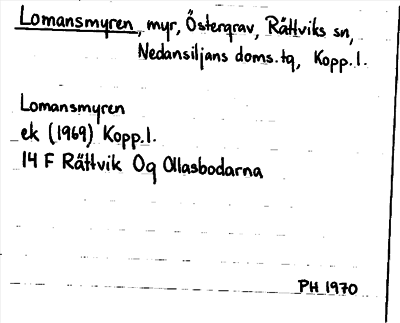 Lomansmyren, myr, Östergrav, Rättviks sn,
Nedansiljans doms.tg, Kopp.l.
Lomansmyren
ek (1969) Kopp.l.
14 F Rättvik Og Ollasbodarna
PH 1970